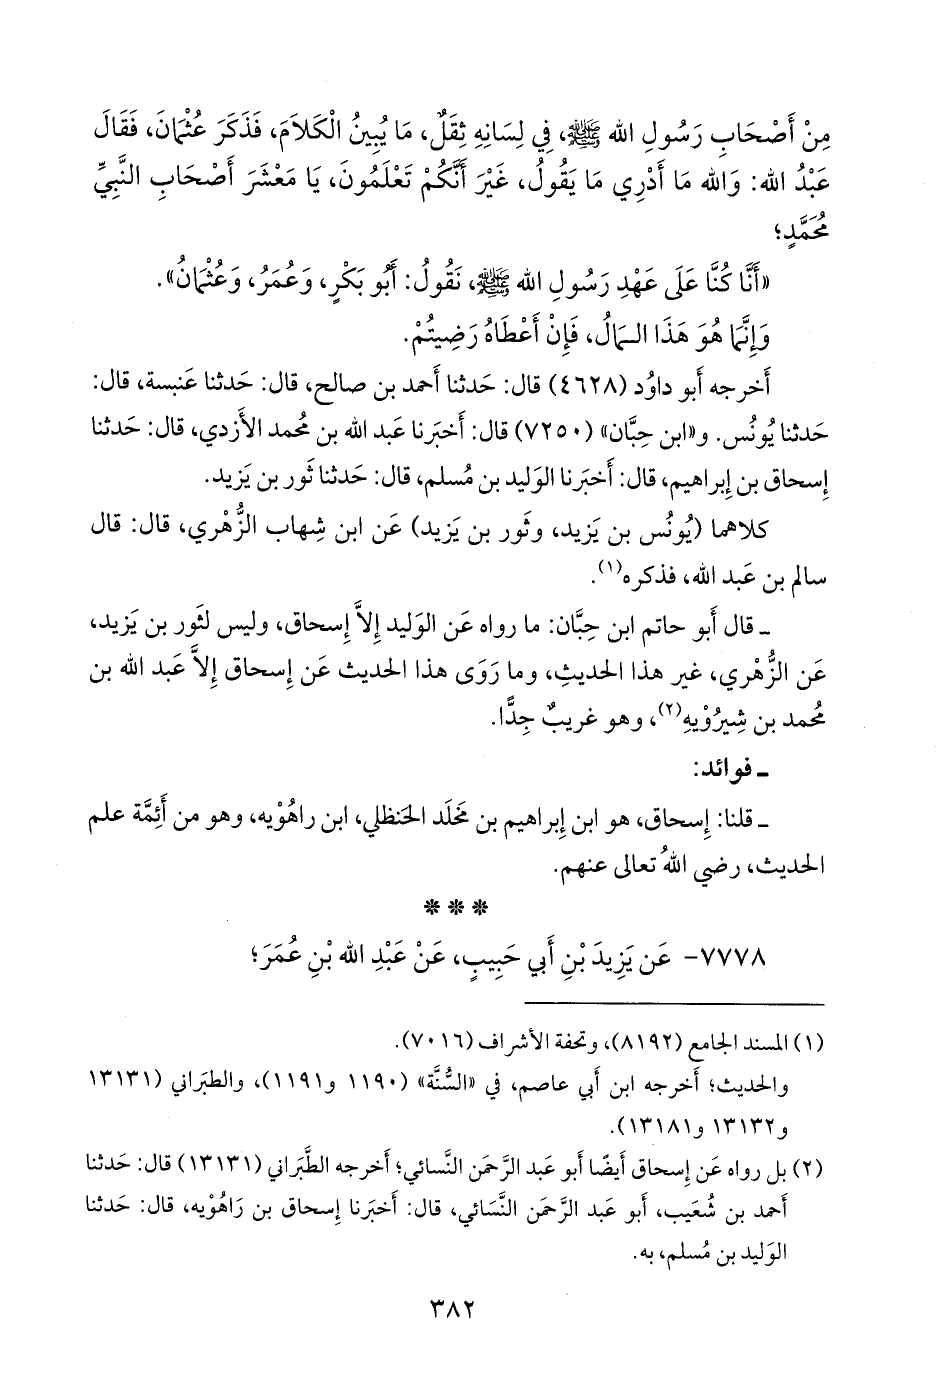 مِنْ أَصْحَابِ رَسُولِ الله ﷺ، فِي لِسَانِهِ ثِقَلٌ، مَا يُبِينُ الْكَلَامَ، فَذَكَرَ عُثْمَانَ، فَقَالَ
عَبْدُ الله: وَالله مَا أَدْرِي مَا يَقُولُ، غَيْرَ أَنَّكُمْ تَعْلَمُونَ، يَا مَعْشَرَ أَصْحَابِ النَّبِيِّ
مُحَمَّدٍ؛
«أَنَّا كُنَّا عَلَى عَهْدِ رَسُولِ الله ﷺ، نَقُولُ: أَبُو بَكْرٍ، وَعُمَرُ، وَعُثْمَانُ».
وَإِنَّمَا هُوَ هَذَا الْمَالُ، فَإِنْ أَعْطَاهُ رَضِيتُمْ.
أَخرجه أَبو داوُد (٤٦٢٨) قال: حَدثنا أَحمد بن صالح، قال: حَدثنا عَنبسة، قال:
حَدثنا يُونُس. و«ابن حِبَّان» (٧٢٥٠) قال: أَخبَرنا عَبد الله بن مُحمد الأَزدي، قال: حَدثنا
إِسحاق بن إِبراهيم، قال: أَخبَرنا الوَليد بن مُسلم، قال: حَدثنا ثَور بن يَزيد.
كلاهما (يُونُس بن يَزيد، وثَور بن يَزيد) عَن ابن شِهاب الزُّهْري، قال: قال
سالم بن عَبد الله، فذكره(١).
ـ قال أَبو حاتم ابن حِبَّان: ما رواه عَن الوَليد إِلاَّ إِسحاق، وليس لثَور بن يَزيد،
عَن الزُّهْري، غير هذا الحديثِ، وما رَوَى هذا الحديث عَن إِسحاق إِلاَّ عَبد الله بن
مُحمد بن شِيرُوْيهِ(٢)، وهو غريبٌ جِدًّا.
ـ فوائد:
ـ قلنا: إِسحاق، هو ابن إِبراهيم بن مَخلَد الحَنظلي، ابن راهُوْيه، وهو من أَئِمَّة علم
الحديث، رضي اللهُ تعالى عنهم.
* * *
٧٧٧٨- عَن يَزِيدَ بْنِ أَبي حَبِيبٍ، عَنْ عَبْدِ الله بْنِ عُمَرَ؛
(١) المسند الجامع (٨١٩٢)، وتحفة الأشراف (٧٠١٦).
والحديث؛ أَخرجه ابن أَبي عاصم، في «السُّنَّة» (١١٩٠ و١١٩١)، والطبَراني (١٣١٣١
و١٣١٣٢ و١٣١٨١).
(٢) بل رواه عَن إِسحاق أَيضًا أَبو عَبد الرَّحمَن النَّسائي؛ أَخرجه الطَّبَراني (١٣١٣١) قال: حَدثنا
أَحمد بن شُعَيب، أَبو عَبد الرَّحمَن النَّسَائي، قال: أَخبَرنا إِسحاق بن رَاهُوْيه، قال: حَدثنا
الوَليد بن مُسلم، به.
٣٨٢